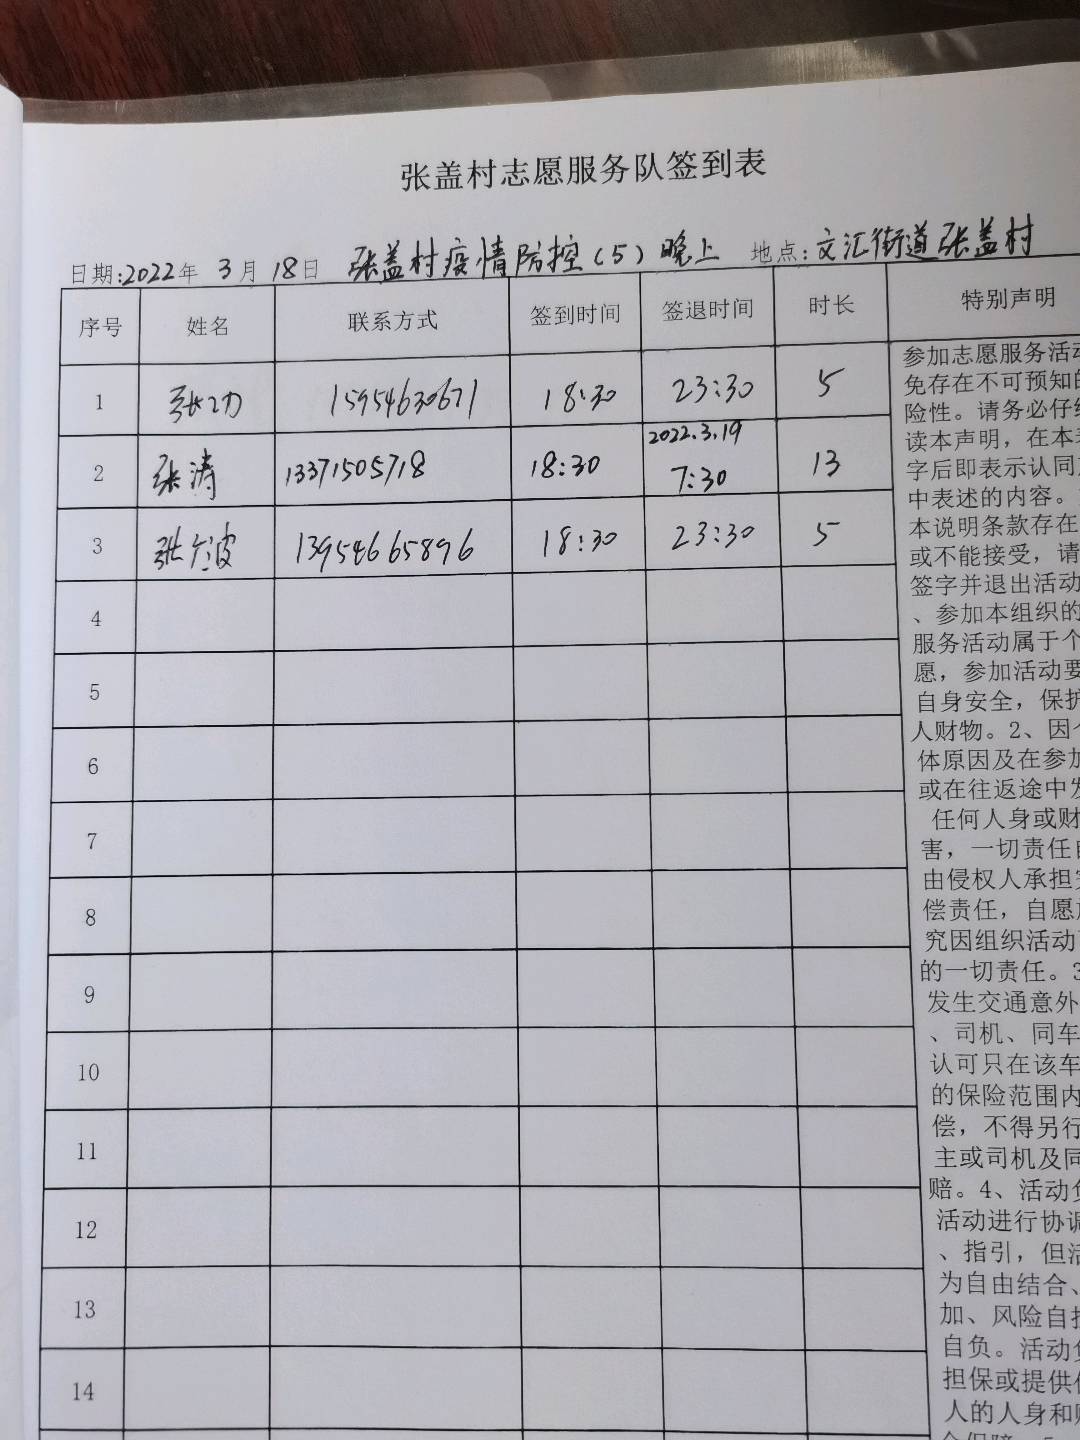 张盖村志愿服务队签到表
日期:2022年 3月 18日 张盖村疫情防控(5)晚上 地点:文汇街道张盖村
序号 姓名 联系方式 签到时间 签退时间 时长 特别声明
1 张功 15954630671 18:30 23:30 5
2 张涛 13371505718 18:30 2022.3.19 7:30 13
3 张 波 13954665896 18:30 23:30 5
4
5
6
7
8
9
10
11
12
13
14
参加志愿服务活动
免存在不可预知的
险性。请务必仔细
读本声明,在本表
字后即表示认同
中表述的内容。
本说明条款存在
或不能接受,请
签字并退出活动
、参加本组织的
服务活动属于个
愿,参加活动要
自身安全,保护
人财物。2、因个
体原因及在参加
或在往返途中发
任何人身或财
害,一切责任自
由侵权人承担
偿责任,自愿放
究因组织活动
的一切责任。3
发生交通意外
、司机、同车
认可只在该车
的保险范围内
偿,不得另行
主或司机及同
赔。4、活动负
活动进行协调
、指引,但活
为自由结合、
加、风险自担
自负。活动负
担保或提供
人的人身和财